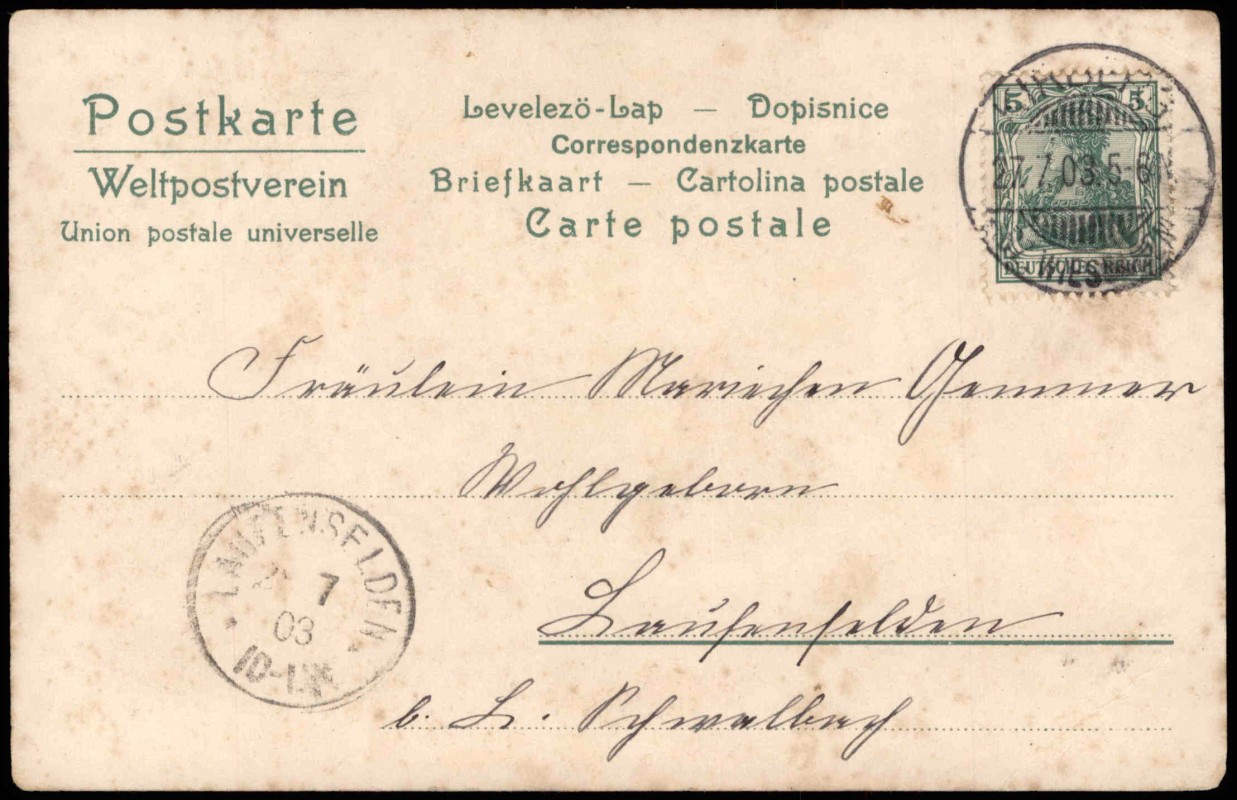 Postkarte
Weltpostverein
Union postale universelle
Levelezö-Lap — Dopisnice
Correspondenzkarte
Briefkaart — Cartolina postale
Carte postale
5 5
27.7.03.5-6
DEUTSCHES REICH
Fräulein Mariechen Gemmer
Wohlgeborn
Laufenselden
b. L. Schwalbach
LAUFENSELDEN
7
03